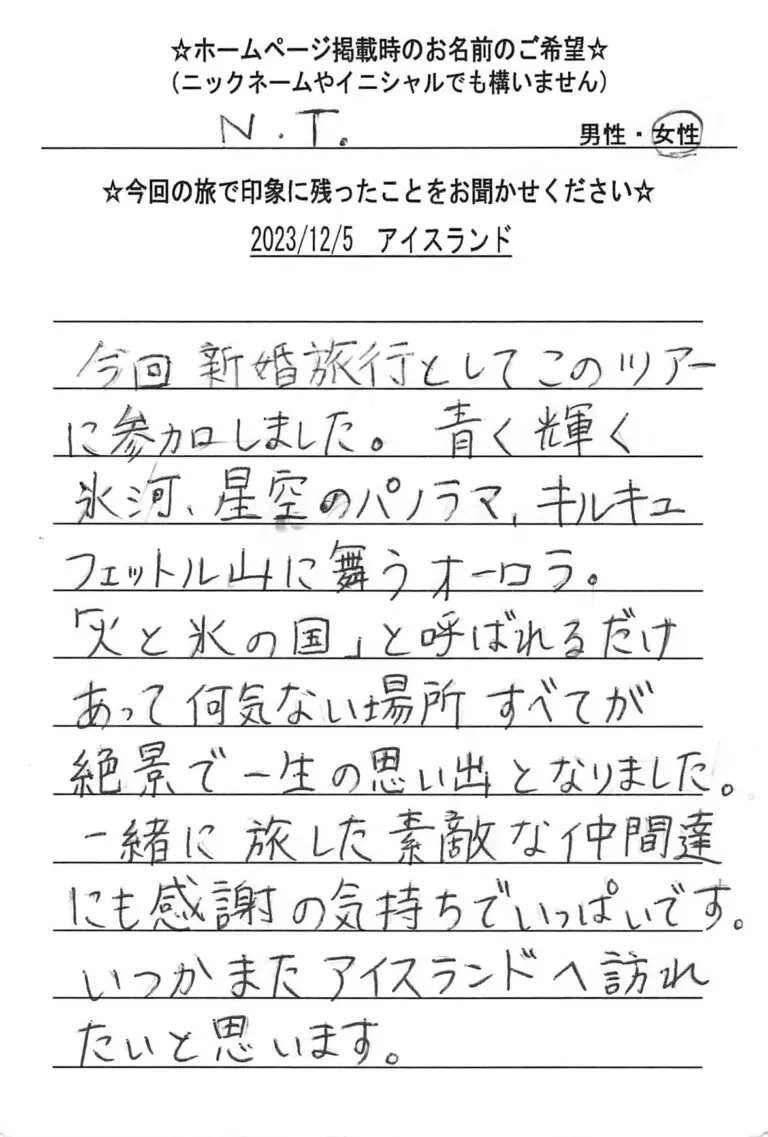 ☆ホームページ掲載時のお名前のご希望☆
(ニックネームやイニシャルでも構いません)
N.T.
男性・女性
☆今回の旅で印象に残ったことをお聞かせください☆
2023/12/5 アイスランド
今回 新婚旅行としてこのツアー
に参加しました。 青く輝く
氷河、星空のパノラマ、キルキュ
フェットル山に舞うオーロラ。
「火と氷の国」と呼ばれるだけ
あって何気ない場所すべてが
絶景で一生の思い出となりました。
一緒に旅した素敵な仲間達
にも感謝の気持ちでいっぱいです。
いつかまたアイスランドへ訪れ
たいと思います。